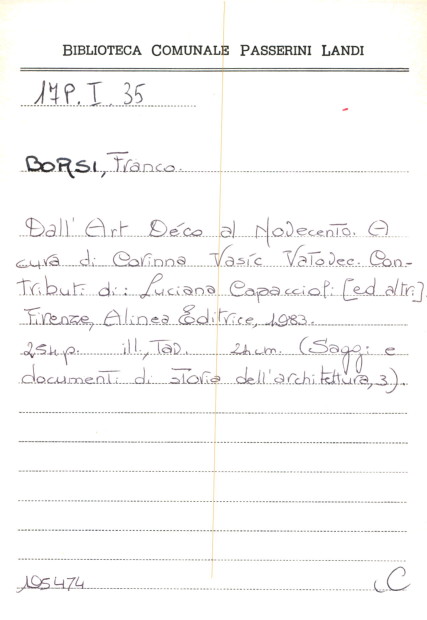 BIBLIOTECA COMUNALE PASSERINI LANDI
17P. I. 35
BORSI, Franco.
Dall' Art Déco al Novecento. A
cura di Corinna Vasić Vatovec. Con-
tributi di: Luciana Capaccioli [ed altri].
Firenze, Alinea Editrice, 1983.
254 p. ill., Tav. 24 cm. (Saggi e
documenti di storia dell'architettura, 3).
195474
C